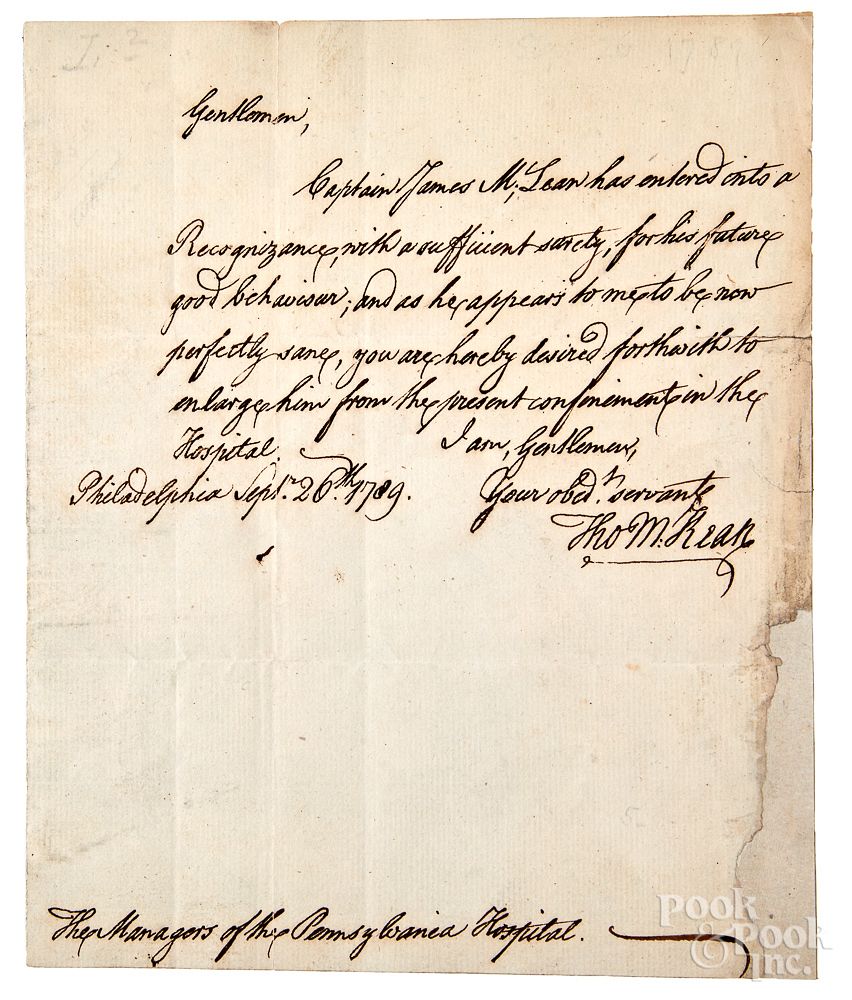 J. 2
1789
Gentlemen,
Captain James Mc;Lean has entered into a
Recognizance, with a sufficient surety, for his future
good behaviour; and as he appears to me to be now
perfectly sane, you are hereby desired forthwith to
enlarge him from the present confinement in the
Hospital. I am, Gentlemen,
Philadelphia Septr. 26th. 1789. Your obedt. servant
Tho M:Kean
The Managers of the Pennsylvania Hospital.
POOK
& POOK
Inc.